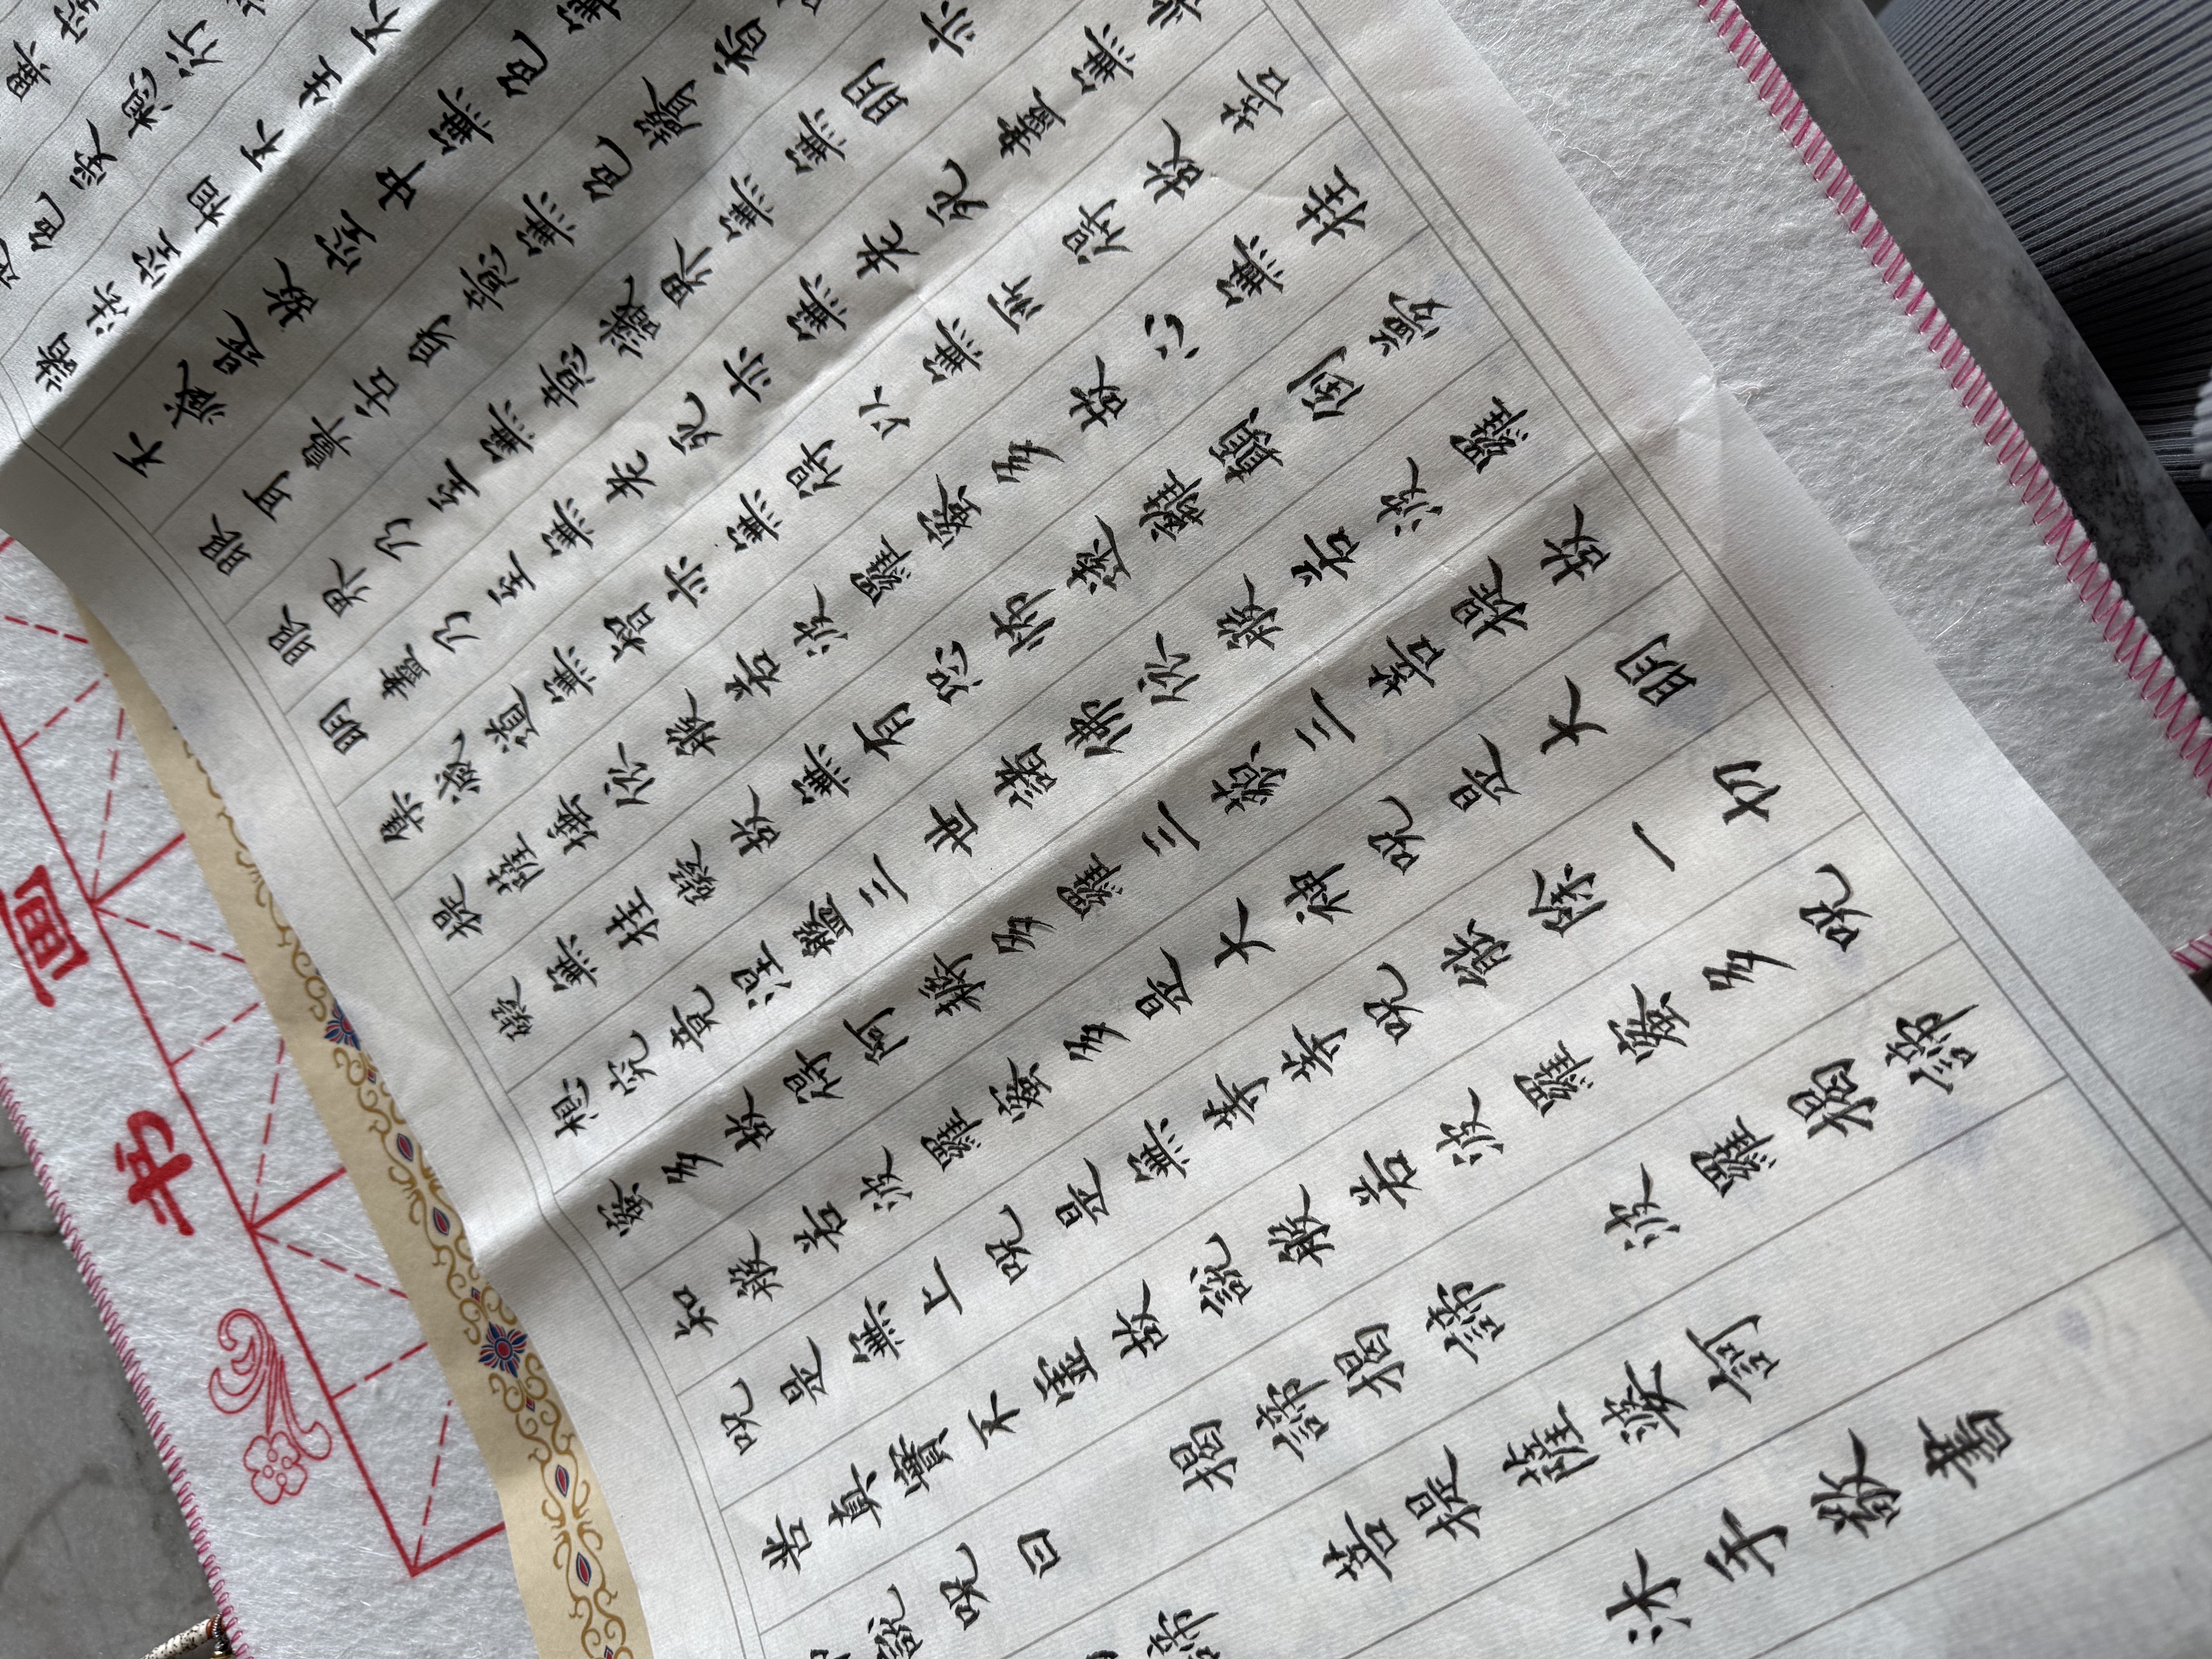 異空
色受想行
諸法空相不生不
不減是故空中無色無
眼耳鼻舌身意無色聲香
眼界乃至無意識界無無明亦
明盡乃至無老死亦無老死盡無
集滅道無智亦無得以無所得故菩
提薩埵依般若波羅蜜多故心無挂
礙無挂礙故無有恐怖遠離顛倒夢
想究竟涅槃三世諸佛依般若波羅
蜜多故得阿耨多羅三藐三菩提故
知般若波羅蜜多是大神咒是大明
咒是無上咒是無等等咒能除一切
苦真實不虛故說般若波羅蜜多咒
說咒曰 揭諦揭諦 波羅揭諦
諦 菩提薩婆訶
沐手敬書
画
书